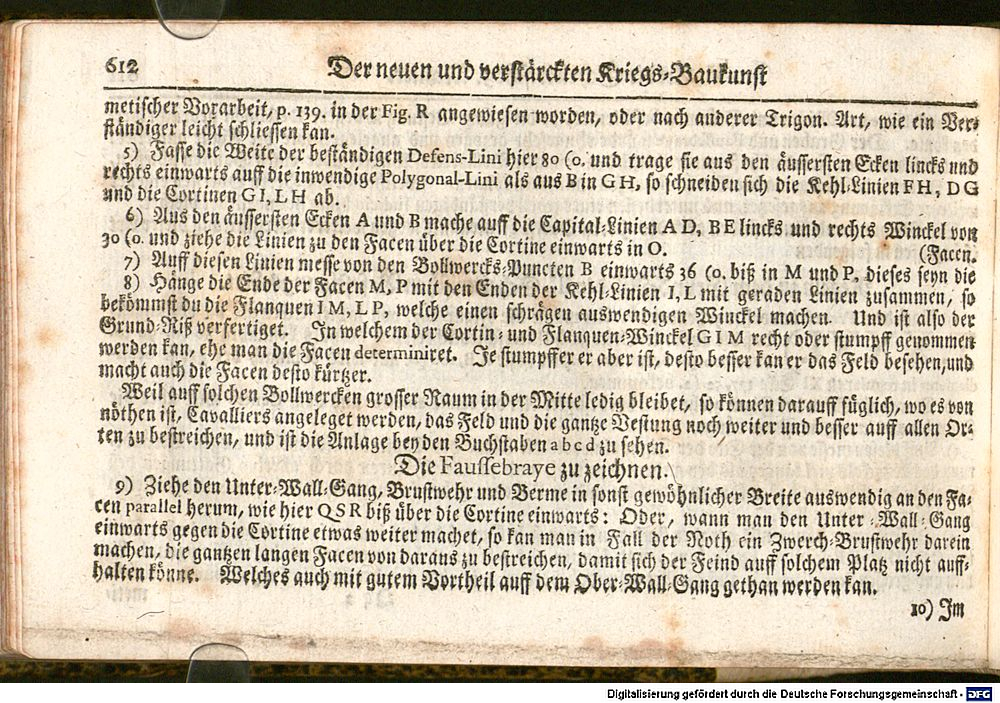 612 Der neuen und verstärckten Kriegs-Baukunst
metischer Vorarbeit, p. 139. in der Fig. R angewiesen worden, oder nach anderer Trigon. Art, wie ein Ver-
ständiger leicht schliessen kan.
5) Fasse die Weite der beständigen Defens-Lini hier 80 (0. und trage sie aus den äussersten Ecken lincks und
rechts einwarts auff die inwendige Polygonal-Lini als aus B in G H, so schneiden sich die Kehl-Linien F H, D G
und die Cortinen G I, L H ab.
6) Aus den äussersten Ecken A und B mache auff die Capital-Linien A D, B E lincks und rechts Winckel von
30 (0. und ziehe die Linien zu den Facen über die Cortine einwarts in O. (Facen.
7) Auff diesen Linien messe von den Bollwercks-Puncten B einwarts 36 (0. biß in M und P, dieses seyn die
8) Hänge die Ende der Facen M, P mit den Enden der Kehl-Linien I, L mit geraden Linien zusammen, so
bekömmst du die Flanquen I M, L P, welche einen schrägen auswendigen Winckel machen. Und ist also der
Grund-Riß verfertiget. In welchem der Cortin- und Flanquen-Winckel G I M recht oder stumpff genommen
werden kan, ehe man die Facen determiniret. Je stumpffer er aber ist, desto besser kan er das Feld besehen, und
macht auch die Facen desto kürtzer.
Weil auff solchen Bollwercken grosser Raum in der Mitte ledig bleibet, so können darauff füglich, wo es von
nöthen ist, Cavalliers angeleget werden, das Feld und die gantze Vestung noch weiter und besser auff allen Or-
ten zu bestreichen, und ist die Anlage bey den Buchstaben a b c d zu sehen.
Die Faussebraye zu zeichnen.
9) Ziehe den Unter-Wall-Gang, Brustwehr und Berme in sonst gewöhnlicher Breite auswendig an den Fa-
cen parallel herum, wie hier Q S R biß über die Cortine einwarts: Oder, wann man den Unter-Wall-Gang
einwarts gegen die Cortine etwas weiter machet, so kan man in Fall der Noth ein Zwerch-Brustwehr darein
machen, die gantzen langen Facen von daraus zu bestreichen, damit sich der Feind auff solchem Platz nicht auff-
halten könne. Welches auch mit gutem Vortheil auff dem Ober-Wall-Gang gethan werden kan.
10) Im
Digitalisierung gefördert durch die Deutsche Forschungsgemeinschaft - DFG